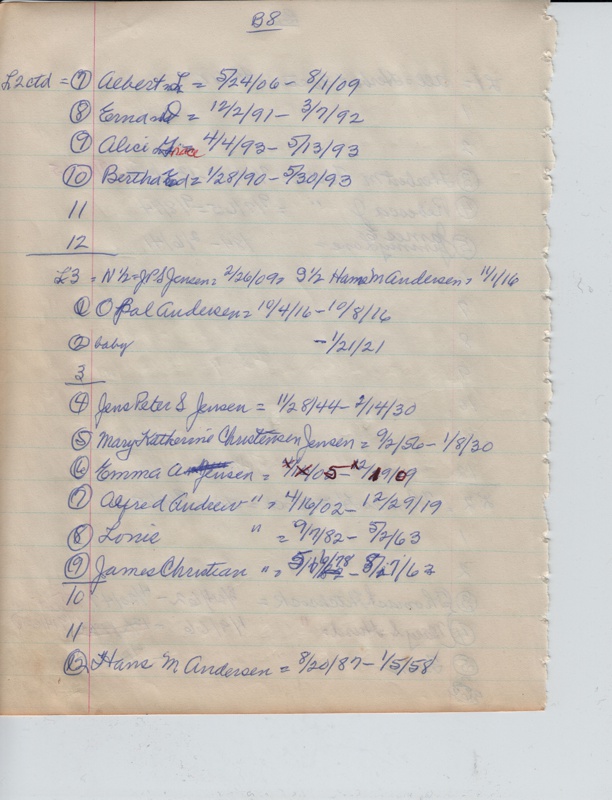 B8
L2 ctd = 7 Albert L = 5/24/06 - 8/1/09
8 Erna D = 12/2/91 - 3/7/92
9 Alice Grace 4/4/93 - 5/13/93
10 Bertha Ed = 1/28/90 - 5/30/93
11
12
L3 = N 1/2 = JPS Jensen = 2/26/09 = S 1/2 Hans M Andersen = 11/1/16
1 Opal Andersen = 10/4/16 - 10/8/16
2 baby - 1/21/21
3
4 Jens Peter S Jensen = 11/28/44 - 2/14/30
5 Mary Katherine Christensen Jensen = 9/2/56 - 1/8/30
6 Emma A Jensen =
7 Alfred Andrew " = 4/16/02 - 12/29/19
8 Lonie " = 9/7/82 - 5/2/63
9 James Christian " =
10
11
12 Hans M Andersen = 8/20/87 - 1/5/58